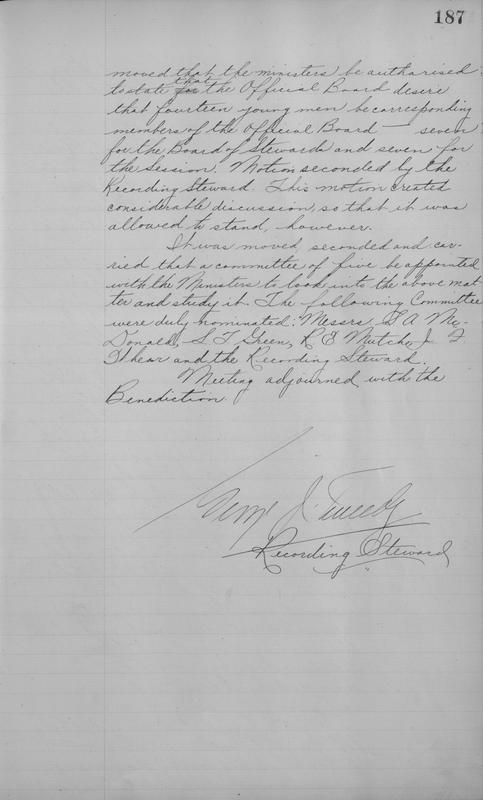 187
moved that the ministers be authorised
to state that the Official Board desire
that fourteen young men be corresponding
members of the Official Board — seven
for the Board of Stewards and seven for
the Session. Motion seconded by the
Recording Steward. This motion created
considerable discussion, so that it was
allowed to stand, however.
It was moved, seconded and car-
ried that a committee of five be appointed
with the Ministers to look into the above mat-
ter and study it. The following Committee
were duly nominated: Messrs A Mc-
Donald, S T Green, R E Mutch, J F
and the Recording Steward.
Meeting adjourned with the
Benediction.
J. Tweedy
Recording Steward